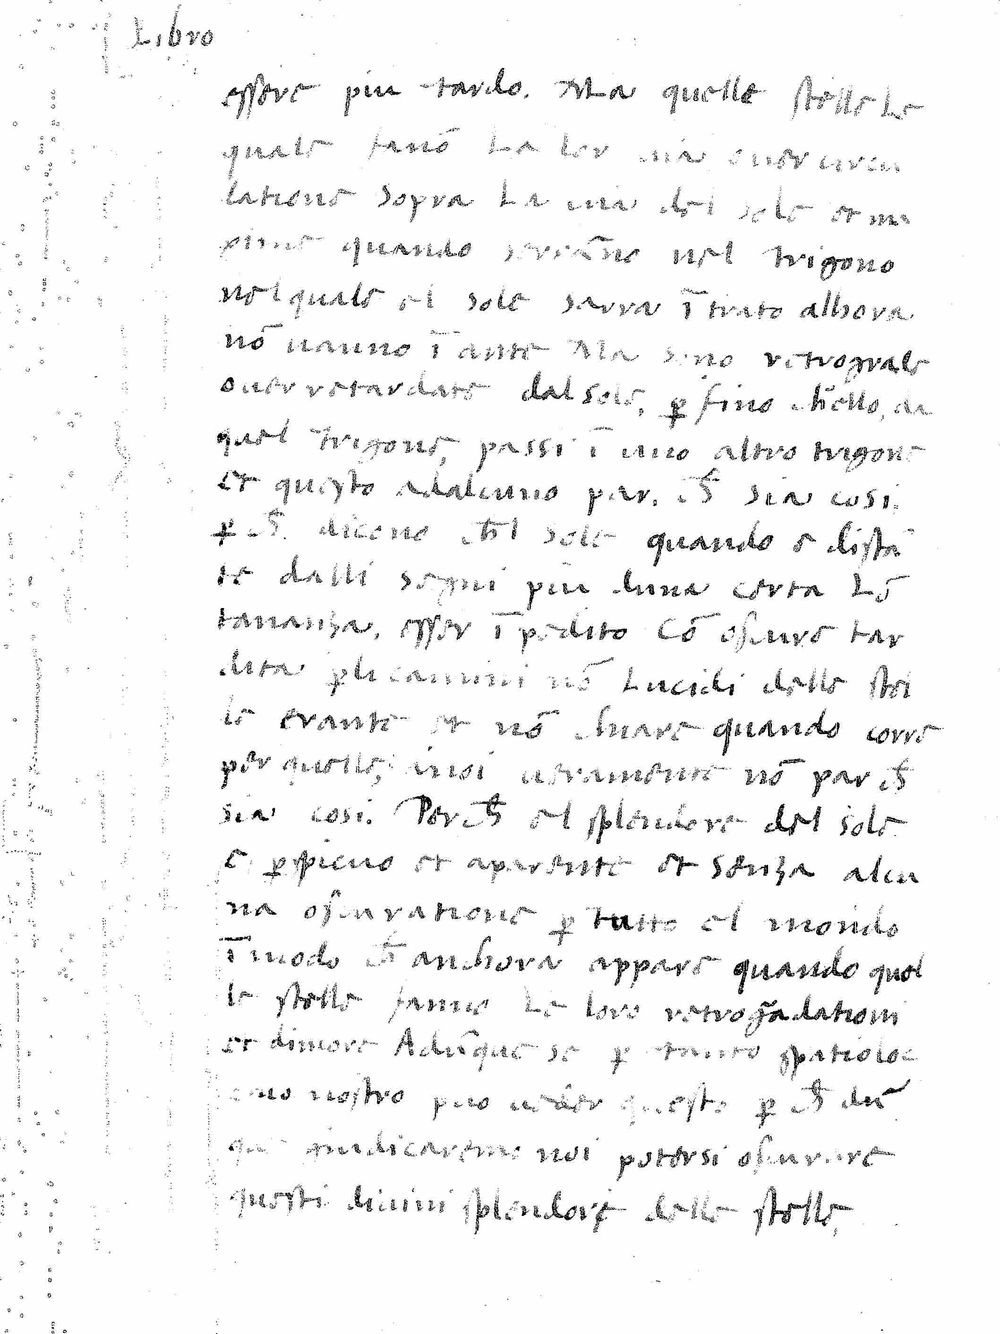 Libro
essere piu tardo. Ma quelle stelle Le
quale fanō La lor uia ouer circu
latione sopra La uia del sole et ma
xime quando serrāno nel trigono
nel quale el sole sarra ītrato alhora
nō uanno īante Ma sono retrograde
ouer retardate dal sole, ꝑ fino
quel trigono, passi ī uno altro trigono
et questo adalcuno par. cħ sia cosi.
ꝑ cħ. dicono cħl sole quando e distā
te dalli segni piu duna certa Lō
tananza, esser īpedito Cō oscure tar
dita ꝑli camini nō Lucidi delle stel
le erante et nō chiare quando corre
per quelle, anoi ueramente nō par cħ
sia cosi. Percħ el splendore del sole
e ꝑspicuo et aparente et senza alcu
na oscuratione ꝑ tutto el mondo
īmodo cħ anchora appare quando quel
le stelle fanno Le loro retrogādationi
et dimore Adūque se ꝑ tanto spatio loc
nostro puo ueder questo ꝑ cħ dū
que giudicaremo noi potersi oscurare
questi diuini splendori delle stelle,